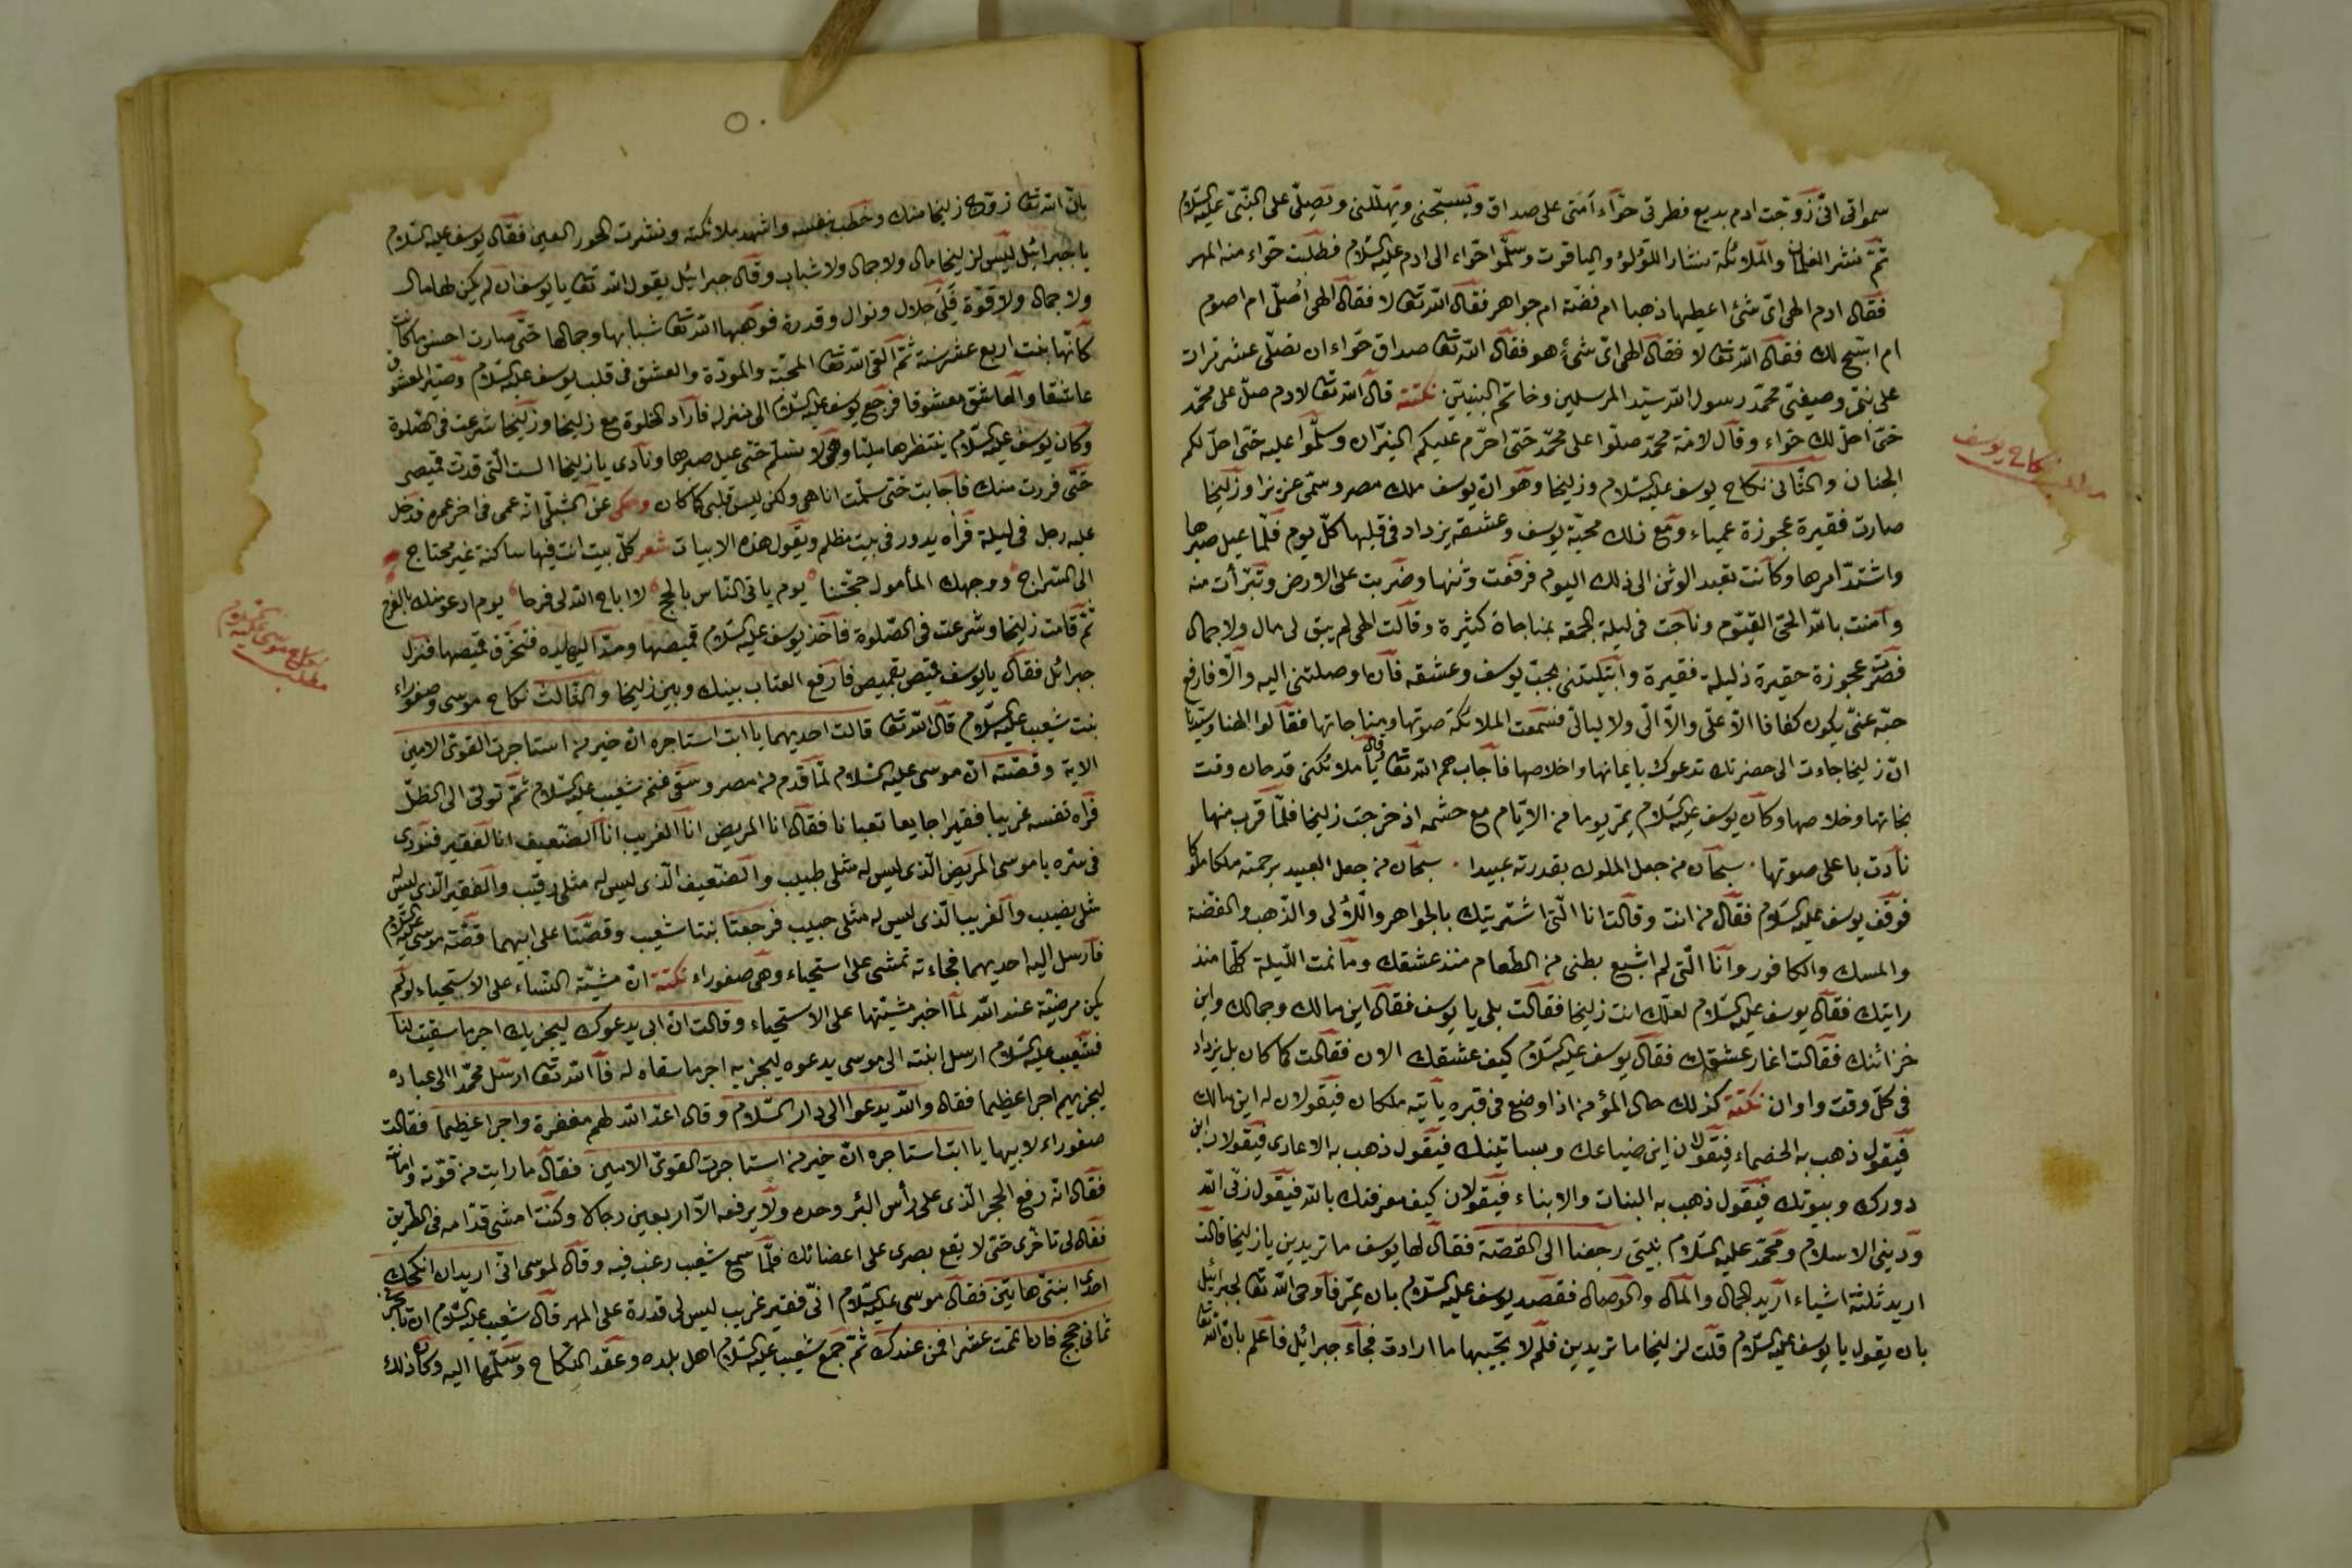 سمواتى انّى زوّجت ادم بديع فطرتى حوّاء اَمَتى على صداق ويسبّحنى ويهلّلنى ويصلّى على النّبىّ عليه السّلام
ثمّ ننثر الغلمان والملائكة نثار اللؤلؤ والياقوت وسلّموا حوّاء الى ادم عليه السّلام فطلبت حوّاء منه المهر
فقال ادم الهى اىّ شئ اعطيها ذهبا ام فضّة ام جواهر فقال اللّه تعالى لا فقال الهى اُصلّى ام اصوم
ام اسبّح لك فقال اللّه تعالى لا فقال الهى اىّ شئ هو فقال اللّه تعالى صداق حوّاء ان تصلّى عشر مرات
على نبيّى وصفيّى محمّد رسول اللّه سيّد المرسلين وخاتم النبيّين نكتة قال اللّه تعالى لادم صلّ على محمّد
حتّى احلّ لك حوّاء وقال لامّة محمّد صلّوا على محمّد حتّى احرّم عليكم النيران وسلّموا عليه حتّى احلّ لكم
الجنان والثّانى نكاح يوسف عليه السّلام وزليخا وهو انّ يوسف ملك مصر وسمّى عزيزا وزليخا
صارت فقيرة عجوزة عمياء ومع ذلك محبّة يوسف وعشقه يزداد فى قلبها كلّ يوم فلمّا عيل صبرها
واشتدّ امرها وكانت تعبد الوثن الى ذلك اليوم فرفعت وثنها وضربت على الارض وتبرّأت منه
وآمنت باللّه الحىّ القيّوم وناجت فى ليلة الجمعة بمناجاة كثيرة وقالت الهى لم يبق لى مال ولا جمال
فصرت عجوزة حقيرة ذليلة فقيرة وابتليتنى بحبّ يوسف وعشقه فان اوصلتنى اليه والّا فارفع
حبّه عنّى يكون كفافا الّا علىّ والّا الىّ ولا ليالىّ فسمعت الملائكة صوتها ومناجاتها فقالوا الهنا وسيّدنا
انّ زليخا جاءت الى حضرتك تدعوك بايمانها واخلاصها فاجاب لهم اللّه تعالى قال يا ملائكتى قد حان وقت
نجاتها وخلاصها وكان يوسف عليه السّلام يمرّ يوما من الايّام مع حشمه اذ خرجت زليخا فلمّا قرب منها
نادت باعلى صوتها سبحان من جعل الملوك بقدرته عبيدا سبحان من جعل العبيد برحمته ملكا ملوكا
فوقف يوسف عليه السّلام فقال من انت وقالت انا الّتى اشتريتك بالجواهر واللّألى والذّهب والفضة
والمسك والكافور وانا الّتى لم اشبع بطنى من الطّعام منذ عشقك وما نمت اللّيلة كلّها منذ
رايتك فقال يوسف عليه السّلام لعلّك انت زليخا فقالت بلى يا يوسف فقال اين مالك وجمالك واين
خزائنك فقالت اغار عشقك فقال يوسف عليه السّلام كيف عشقك الان فقالت كما كان بل يزداد
فى كلّ وقت واوان نكتة كذلك حال المؤمن اذا وضع فى قبره يأتيه ملكان فيقولان له اين مالك
فيقول ذهب به الخصماء فيقولان اين ضياعك وبساتينك فيقول ذهب به الاعادى فيقولان اين
دورك وبيوتك فيقول ذهب به البنات والابناء فيقولان كيف معرفتك باللّه فيقول ربّى اللّه
ودينى الاسلام ومحمّد عليه السّلام نبيّى رجعنا الى القصّة فقال لها يوسف ما تريدين يا زليخا قالت
اريد ثلثة اشياء اريد الجمال والمال والوصال فقصد يوسف عليه السّلام بان يمرّ فاوحى اللّه تعالى لجبرائيل
بان يقول يا يوسف عليه السّلام قلت لزليخا ما تريدين فلم لا تجيبها ما ارادت فجاء جبرائيل فاعلم بان اللّه تعالى
مطلب نكاح يوسف
بانّ اللّه تعالى زوّج زليخا منك وخطب بنفسه واشهد ملائكته ونثرت الحور العين فقال يوسف عليه السّلام
يا جبرائيل ليس لزليخا مال ولا جمال ولا شباب وقال جبرائيل يقول اللّه تعالى يا يوسف ان لم يكن لها مال
ولا جمال ولا قوّة فلى جلال ونوال وقدرة فوهبها اللّه تعالى شبابها وجمالها حتّى صارت احسن ما كانت
كانّها بنت اربع عشر سنة ثمّ القى اللّه تعالى المحبّة والمودّة والعشق فى قلب يوسف عليه السّلام وصيّر المعشوق
عاشقا والعاشق معشوقا فرجع يوسف عليه السّلام الى منزله فاراد الخلوة مع زليخا وزليخا شرعت فى الصّلوة
وكان يوسف عليه السّلام ينتظرها مليّا وهى لا تسلّم حتّى عيل صبرها ونادى يا زليخا الست الّتى قدّت قميصى
حتّى فررت منك فاجابت حتّى سلّمت انا هى ولكن ليس قلبى كما كان وحكى عن الشبلى انّه عمى فى اخر عمره فدخل
عليه رجل فى ليلة فرآه يدور فى بيت مظلم ويقول هذه الابيات شعر كلّ بيت انت فيها ساكنة غير محتاج
الى السّراج ووجهك المأمول حجّتنا يوم ياتى النّاس بالحجج لا اباح اللّه لى فرحا يوم ادعو منك بالفرج
ثمّ قامت زليخا وشرعت فى الصّلوة فاخذ يوسف عليه السّلام قميصها ومدّ اليها يده فتخرّق قميصها فنزل
جبرائل فقال يا يوسف قميص بقميص فارفع العتاب بينك وبين زليخا والثّالث نكاح موسى وصفوراء
بنت شعيب عليه السّلام قال اللّه تعالى قالت احديهما يا ابت استاجره انّ خير من استاجرت القوىّ الامين
الاية وقصّته انّ موسى عليه السّلام لمّا قدم من مصر وسقى غنم شعيب عليه السّلام ثمّ تولّى الى الظلّ
فرآه نفسه غريبا فقيرا جايعا تعبانا فقال انا المريض انا الغريب انا الضّعيف انا الفقير فنودى
فى سرّه يا موسى المريض الّذى ليس له مثلى طبيب والضّعيف الّذى ليس له مثلى رقيب والفقير الّذى ليس له
مثلى نصيب والغريب الّذى ليس له مثلى حبيب فرجعتا بنتا شعيب وقصّتا على ابيهما قصّة موسى عليه السّلام
فارسل اليه احديهما فجاءته تمشى على استحياء وهى صفوراء نكتة انّ مشية النّساء على الاستحياء لو لم
يكن مرضيّة عند اللّه لما اخبر مشيتها على الاستحياء وقالت انّ ابى يدعوك ليجزيك اجر ما سقيت لنا
فشعيب عليه السّلام ارسل ابنته الى موسى يدعوه ليجزيه اجر ما سقاه له فاللّه تعالى ارسل محمّدا الى عباده
ليجزيهم اجرا عظيما فقال واللّه يدعوا الى دار السّلام وقال اعدّ اللّه لهم مغفرة واجرا عظيما فقالت
صفوراء لابيها يا ابت استاجره انّ خير من استاجرت القوىّ الامين فقال ما رايت من قوّته وامانته
فقال انّه رفع الحجر الّذى على رأس البئر وحده ولا يرفعه الّا اربعين رجالا وكنت امشى قدّامه فى الطّريق
فقال لى تاخّرى حتّى لا يقع بصرى على اعضائك فلمّا سمع شعيب رغب فيه وقال لموسى انّى اريد ان انكحك
احدى ابنتىّ هاتين فقال موسى عليه السّلام انّى فقير غريب ليس لى قدرة على المهر قال شعيب عليه السّلام ان تاجرنى
ثمانى حجج فان اتممت عشرا فمن عندك ثمّ جمع شعيب عليه السّلام اهل بلده وعقد النّكاح وسلّمها اليه وكان ذلك
مطلب نكاح موسى عليه السلام